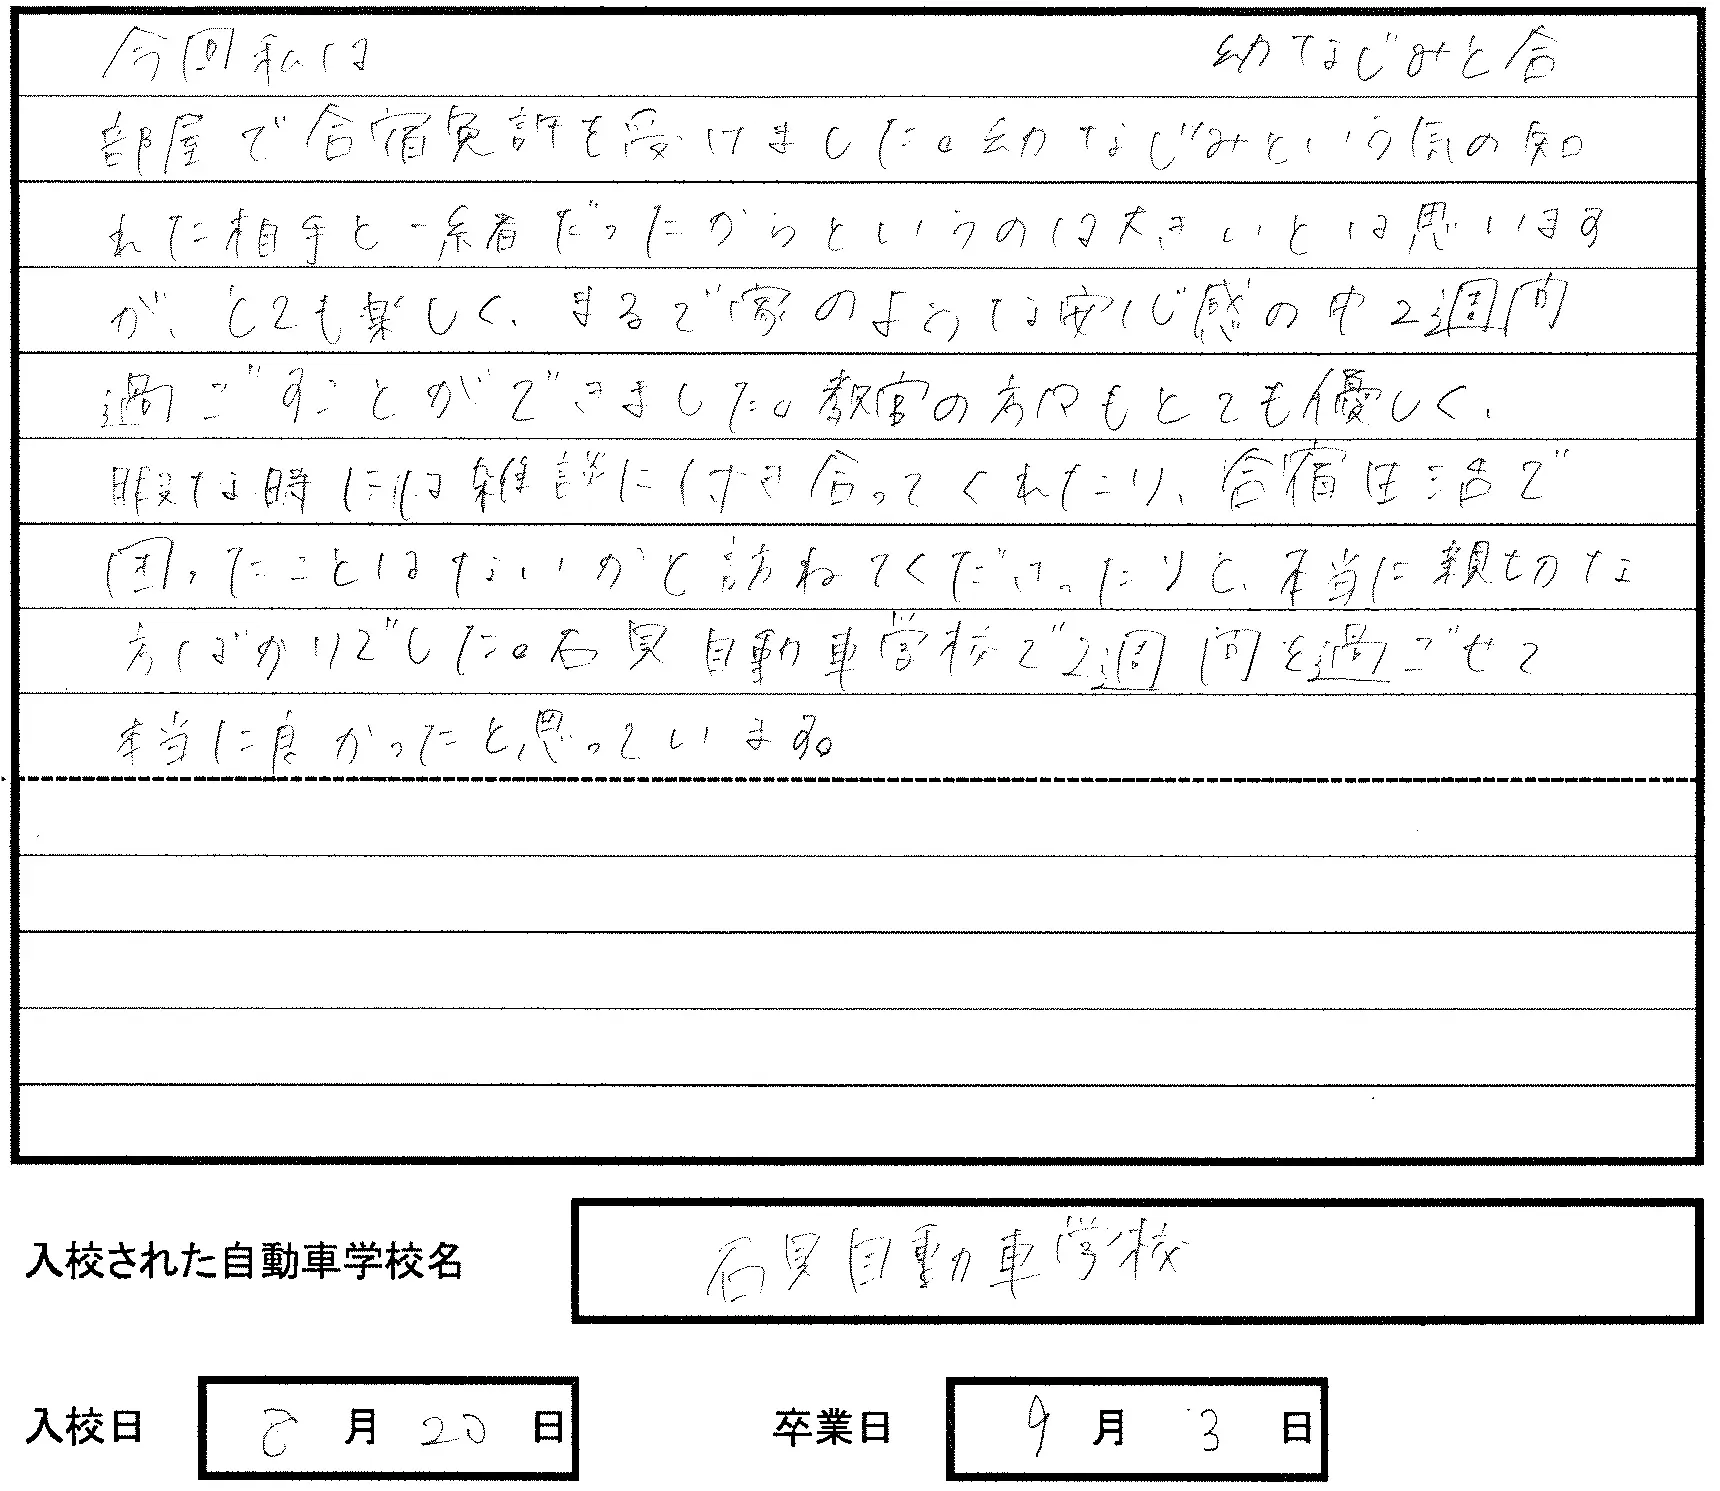 今回私は 幼なじみと合
部屋で合宿免許を受けました。幼なじみという気の知
れた相手と一緒だったからというのは大きいとは思います
が、とても楽しく、まるで家のような安心感の中2週間
過ごすことができました。教官の方々もとても優しく、
暇な時には雑談に付き合ってくれたり、合宿生活で
困ったことはないかと訪ねてくださったりと、本当に親切な
方ばかりでした。石見自動車学校で2週間を過ごせて
本当に良かったと思っています。
入校された自動車学校名 石見自動車学校
入校日 8月20日 卒業日 9月3日